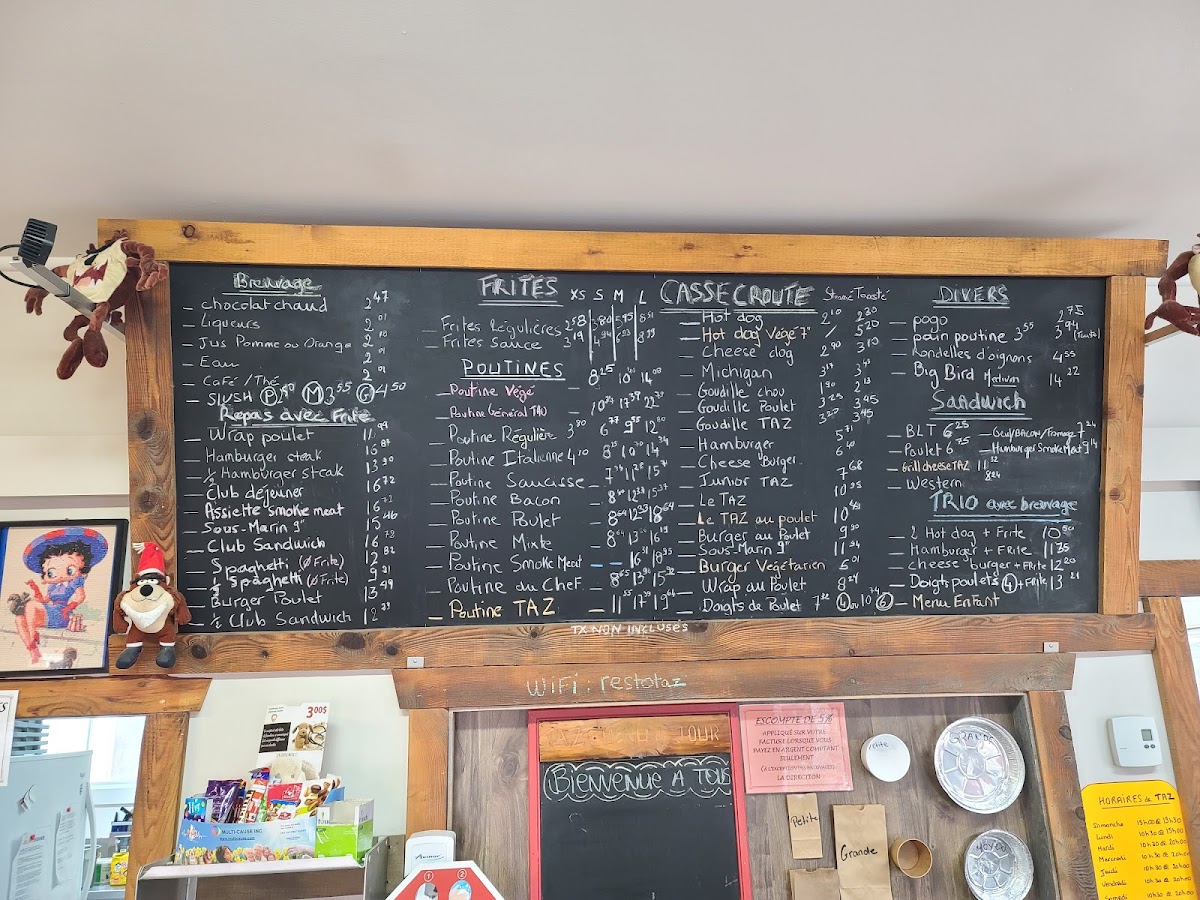 Breuvage
chocolat chaud 2 47
Liqueurs 2 01
Jus Pomme ou Orange 2 01
Eau 2 01
Café / Thé 2 01
SLUSH P M 3 55 G 4 50
Repas avec Frite
Wrap poulet 11 99
Hamburger steak 16 87
½ Hamburger steak 13 90
Club déjeuner 16 72
Assiette smoke meat 16
Sous-Marin 9" 15 46
Club Sandwich 16 78
Spaghetti (Ø Frite) 12 82
½ Spaghetti (Ø Frite) 9 21
Burger Poulet 13 49
½ Club Sandwich 12 39
FRITES XS S M L
Frites Régulières 2 58
Frites Sauce 3 19
POUTINES
Poutine Végé 8 25 10 14
Poutine Général TAO 10 17 39 22
Poutine Régulière 3 80 6 77 9 55 12 80
Poutine Italienne 4 10 8 25 10 14
Poutine Saucisse 7 11 15
Poutine Bacon 8 12 15
Poutine Poulet 8 64 12 18 64
Poutine Mixte 8 64 13 16
Poutine Smoke Meat - - 16 18
Poutine du Chef 8 65 13 15
Poutine TAZ 11 55 17 19 64
CASSE CROUTE Steamé Toasté
Hot dog 2 10 2 30
Hot dog Végé 7" / 5 20
Cheese dog 2 90 3 10
Michigan 3
Goudille chou 1 90 2 13
Goudille Poulet 3 25 3 45
Goudille TAZ 3 45
Hamburger 5 71
Cheese Burger 6 40
Junior TAZ 7 68
Le TAZ 10 35
Le TAZ au poulet 10
Burger au Poulet 9 30
Sous-Marin 9" 11
Burger Végétarien 5 01
Wrap au Poulet 8 24
Doigts de Poulet 7 4 ou 10 6
DIVERS
pogo 2 75
pain poutine 3 55 3 94
Rondelles d'oignons 4 55
Big Bird 14 22
Sandwich
BLT 6 25
Oeuf/BACON/Fromage 7 24
Poulet 6 75
Hamburger Smoke Meat 9 14
Grill cheese TAZ 11
Western 8 24
TRIO avec breuvage
2 Hot dog + Frite 10 50
Hamburger + Frite 11 35
cheese burger + Frite 12 20
Doigts poulets 4 + Frite 13 21
Menu Enfant
TX NON INCLUSES
WiFi : restotaz
3 00$
MULTI-CAUSE INC
BIENVENUE A TOUS
ESCOMPTE DE 5%
APPLIQUÉ SUR VOTRE
FACTURE LORSQUE VOUS
PAYEZ EN ARGENT COMPTANT
SEULEMENT
LA DIRECTION
Petite
GRANDE
Petite
Grande
MOYEN
HORAIRES du TAZ
Dimanche
Lundi
Mardi 10h30 @ 20h00
Mercredi 10h30 @ 20h00
Jeudi 10h30 @ 20h00
Vendredi 10h30 @ 20h00
Samedi 10h30 @ 20h00